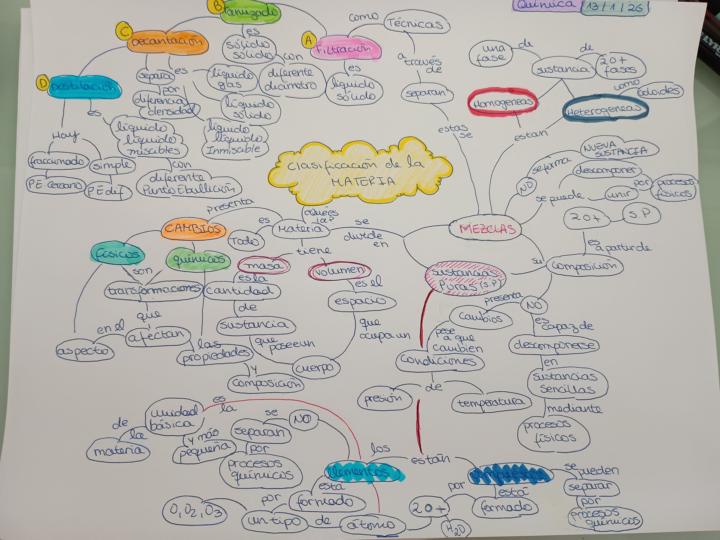 Química 13/1/26
B
Tamizado
C
Decantación
A
Filtración
D
Destilación
como
Técnicas
a
través
de
separan
estas
se
es
sólido
sólido
con
diferente
diámetro
es
líquido
sólido
separa
por
diferencia
densidad
es
líquido
gas
líquido
sólido
líquido
líquido
Inmiscible
Hay
fraccionado
PE cercano
simple
PE dif
es
líquido
líquido
miscibles
con
diferente
Punto Ebullición
una
fase
de
sustancia
de
20+
fases
como
coloides
Homogeneas
Heterogeneas
estan
Clasificación de la
MATERIA
MEZCLAS
NO
se forma
NUEVA
SUSTANCIA
se puede
descomponer
unir
por
procesos
físicos
2o+
S.P
es a partir de
su
composición
presenta
CAMBIOS
físicos
químicos
son
transformaciones
que
afectan
en el
aspecto
las
propiedades
y
composición
Materia
es
Todo
tiene
masa
es la
cantidad
de
sustancia
que
posee un
cuerpo
volumen
es el
espacio
que
ocupa un
se
divide
en
sustancias
Puras (S.P)
presenta
cambios
NO
pese
a que
cambien
condiciones
de
presión
temperatura
es
capaz de
descomponerse
en
sustancias
sencillas
mediante
procesos
físicos
es
la
unidad
básica
de
la
materia
y más
pequeña
se
NO
separan
por
procesos
químicos
los
están
elementos
está
formado
por
un tipo
de
átomo
O, O2, O3
compuestos
está
formado
por
2o+
H2O
se pueden
separar
por
procesos
químicos